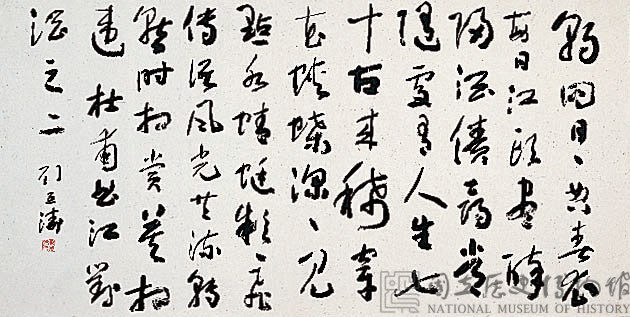 朝回日、典春衣
每日江頭盡醉
歸酒債尋常
隨處有人生七
十古來稀穿
花蛺蝶深、見
點水蜻蜓款、飛
傳語風光共流轉
暫時相賞莫相
違 杜甫曲江對
酒之二
劉延濤
國立歷史博物館
NATIONAL MUSEUM OF HISTORY